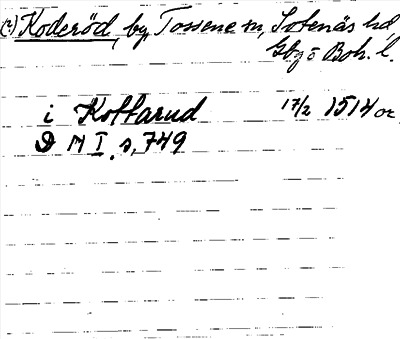 (?) Koderöd, by, Tossene sn, Sotenäs hd,
Gbg o Boh. l.
i Kottarud 17/2 1514 or
D N I s, 749